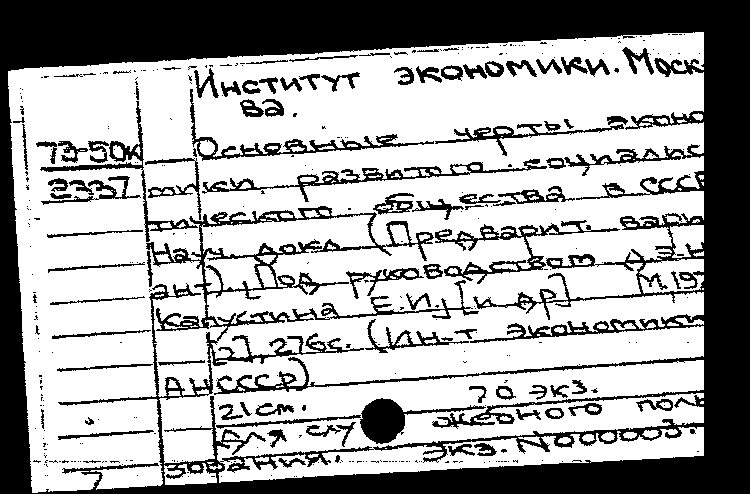 Институт экономики. Моск-
ва.
73-50к
2337
Основные черты эконо
мики развитого социалис
тического общества в СССР
Науч. докл (Предварит. вари
ант). [Под руководством д.э.н
Капустина Е.И.] [и др]. М. 197
[2], 276с. (Ин-т экономики
АН СССР).
21 см. 70 экз.
Для слу жебного поль
зования. Экз. N000003.
7